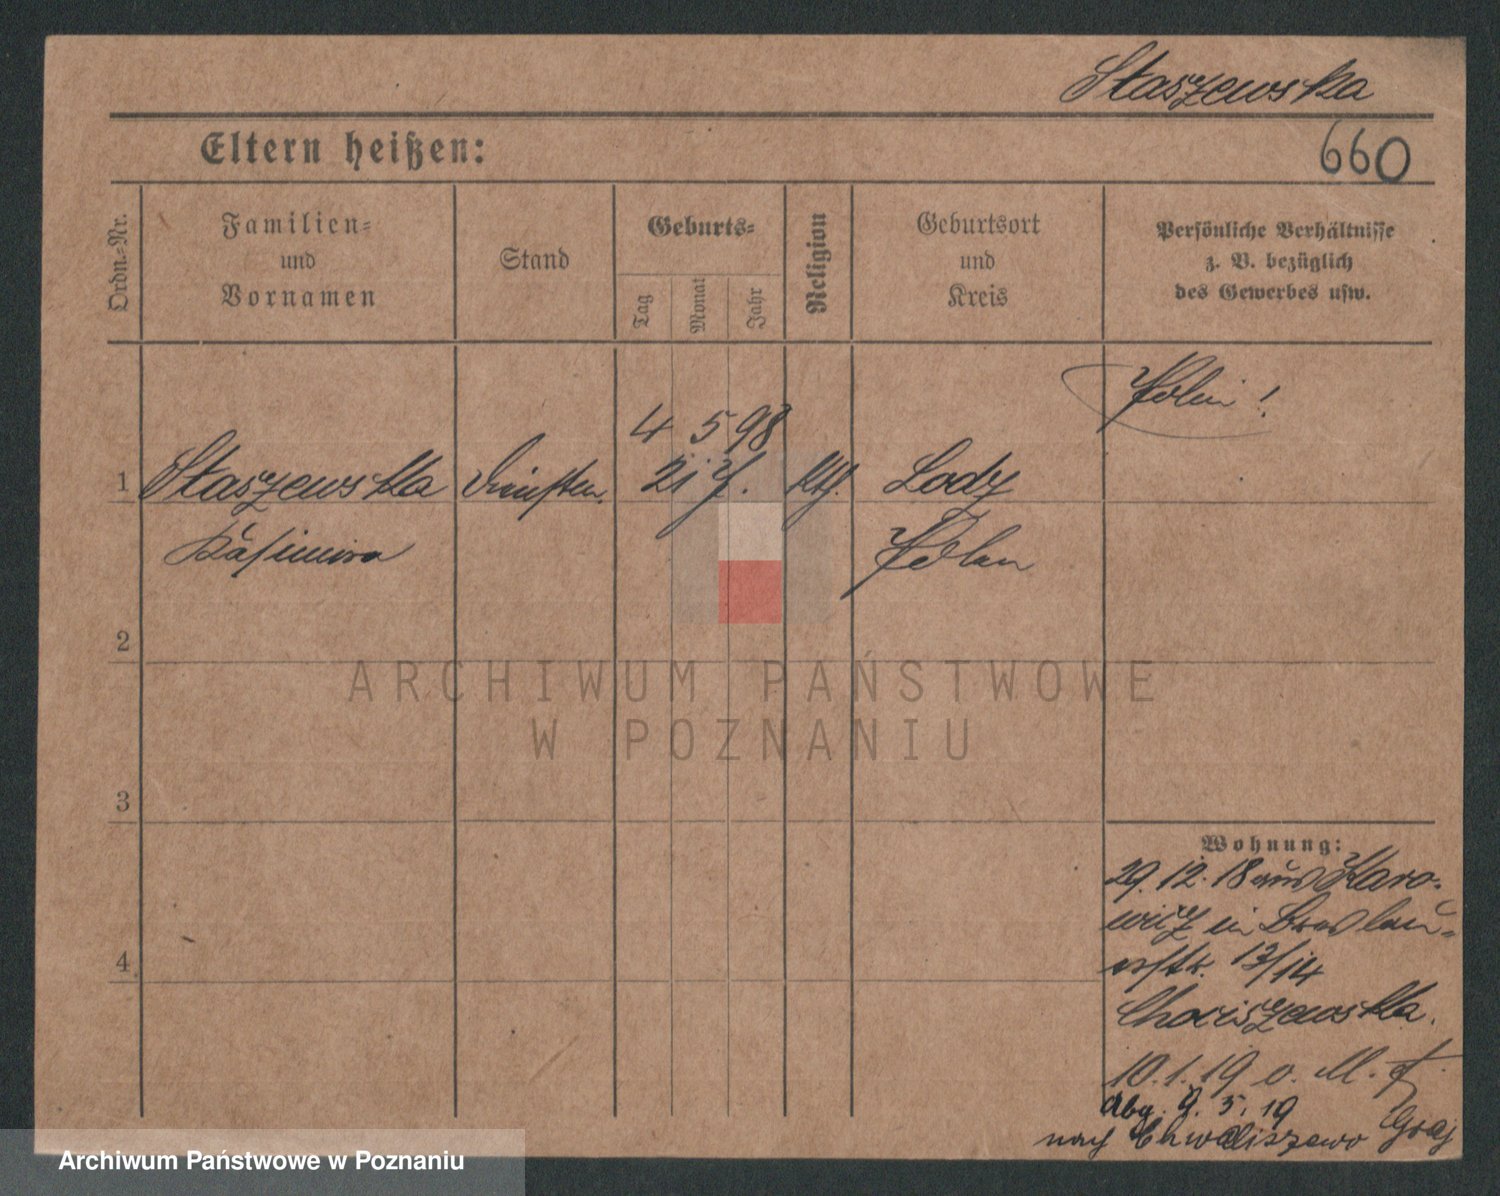 Staszewska
Eltern heißen:
660
Ordn.-Nr.
Familien-
und
Vornamen
Stand
Geburts-
Tag
Monat
Jahr
Religion
Geburtsort
und
Kreis
Persönliche Verhältnisse
z. B. bezüglich
des Gewerbes usw.
Polin!
4 5 98
1 Staszewska 21 J. kth. Lodz
Kasimira Polen
2
3
4
ARCHIWUM PAŃSTWOWE
W POZNANIU
Wohnung:
29.12.18 aus
in Breslau-
13/14
10.1.19 o.
Abg. 9.5.19
nach Chwaliszewo
Archiwum Państwowe w Poznaniu